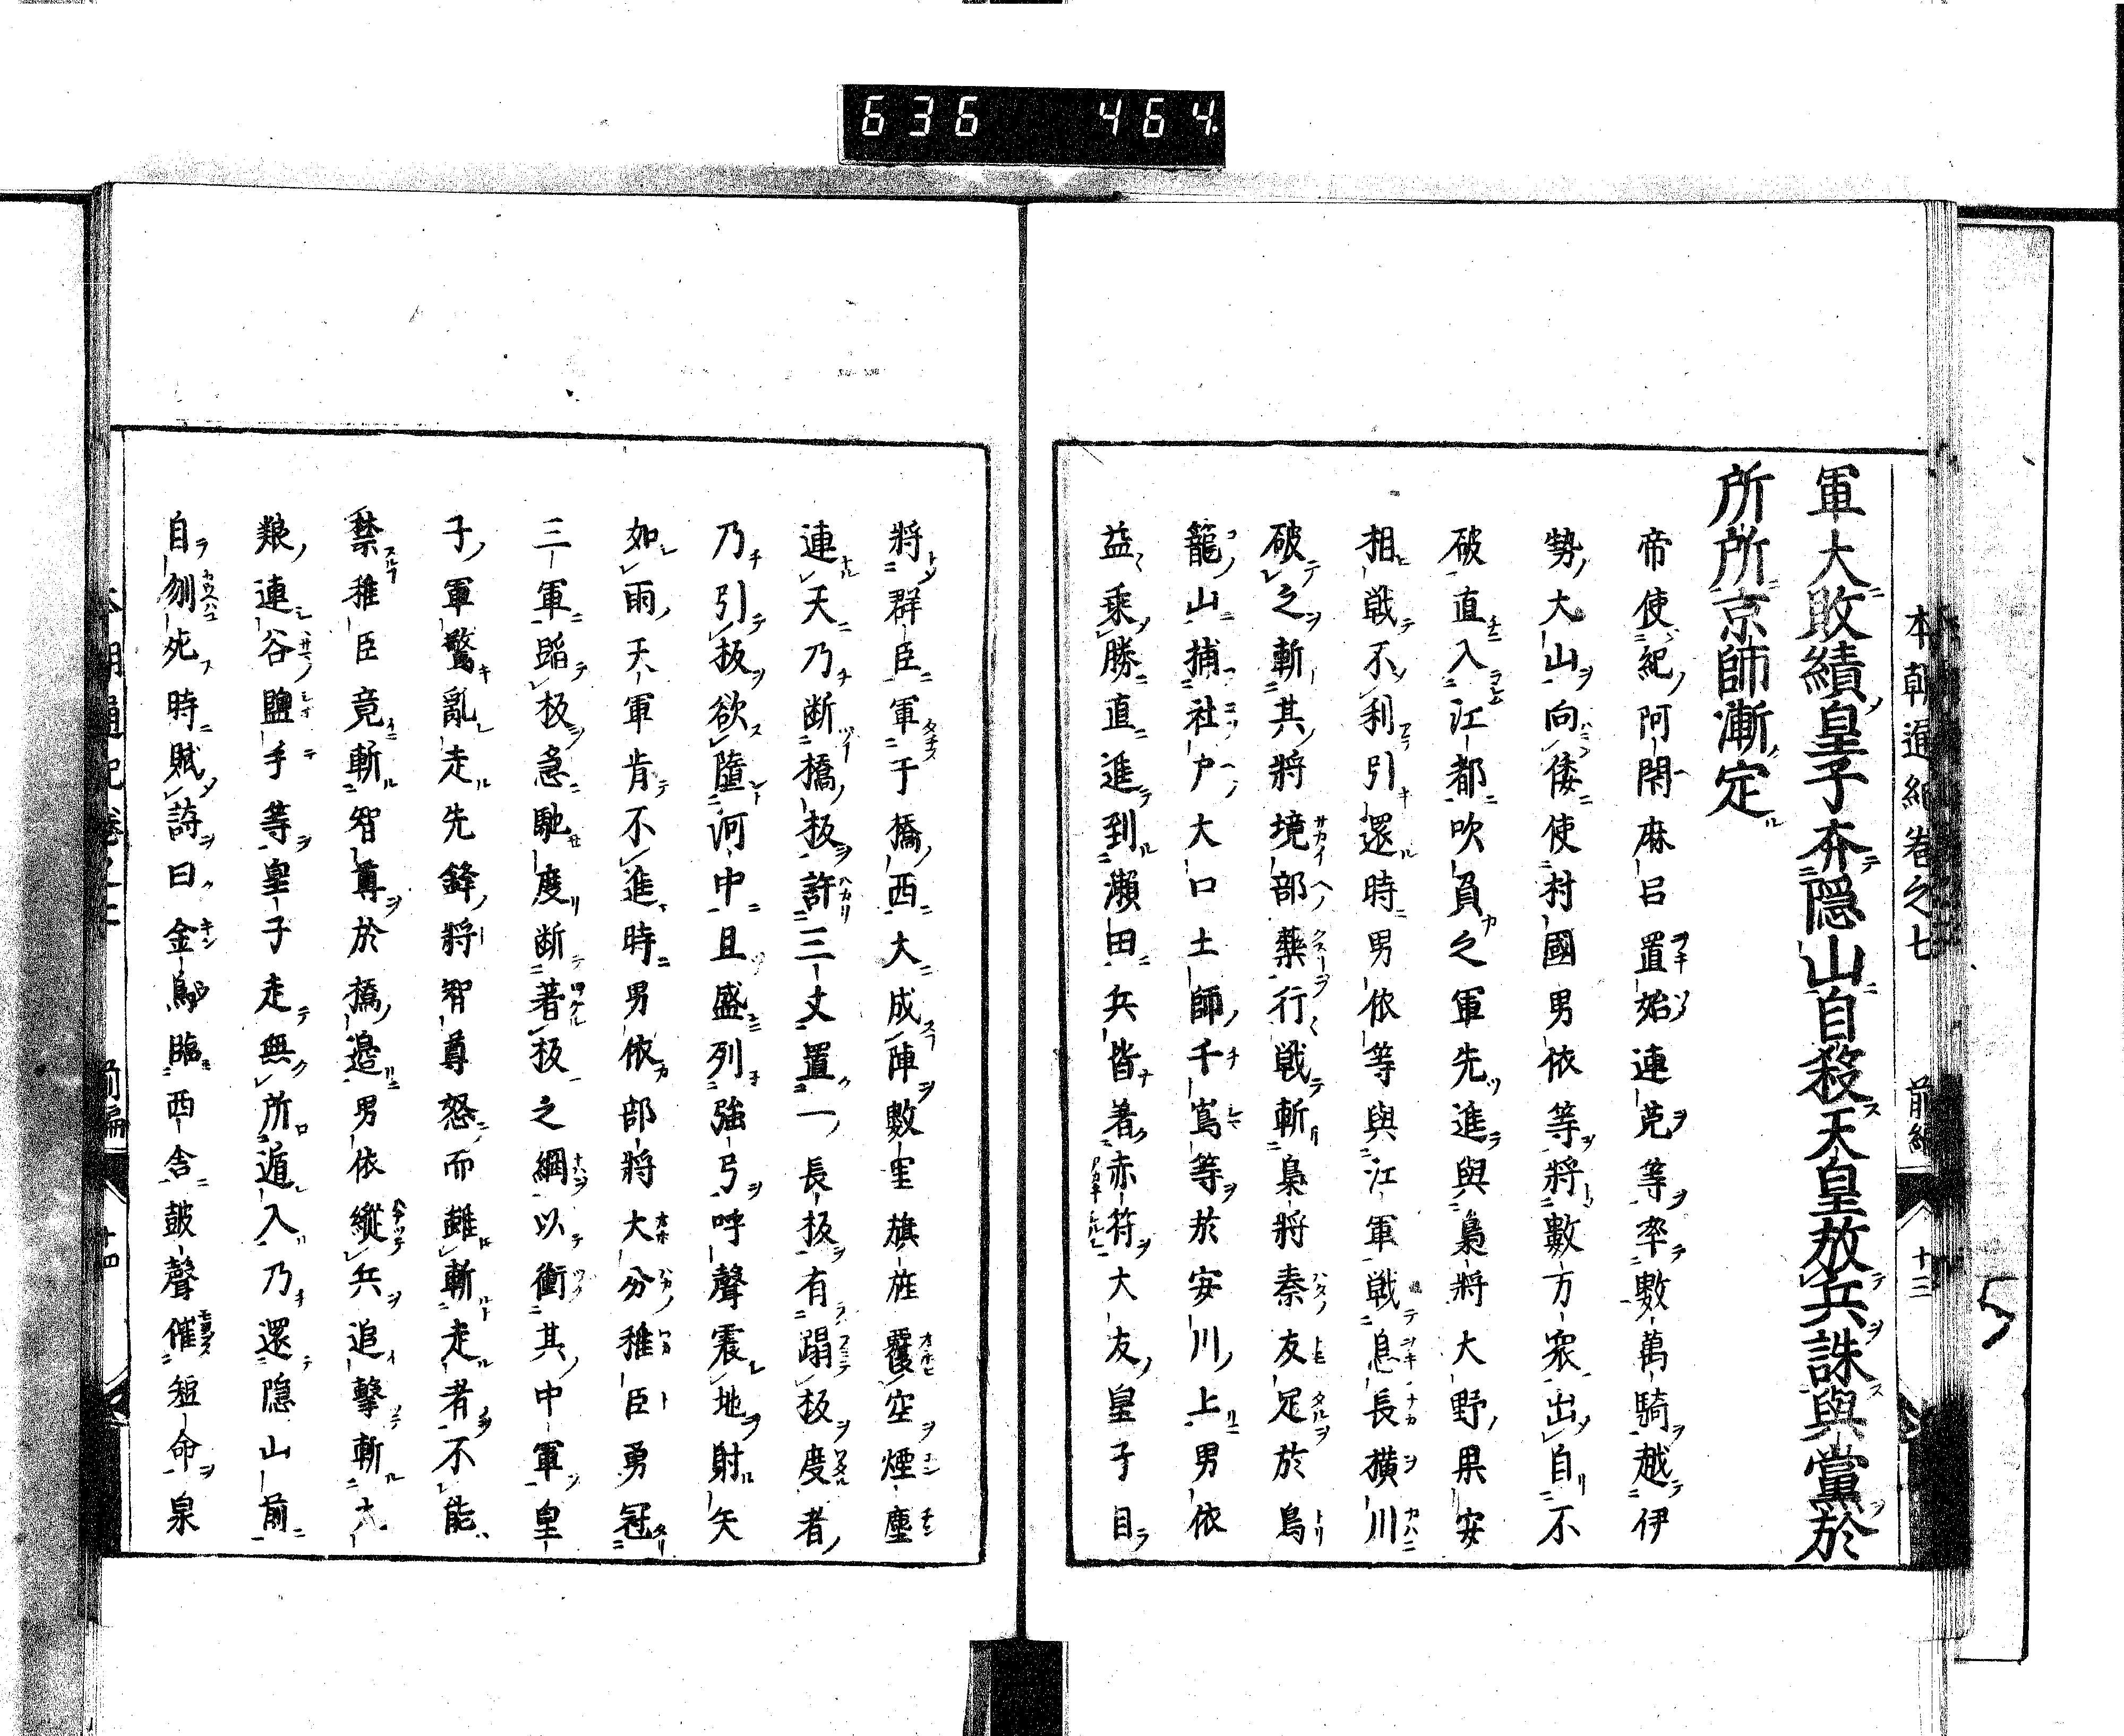 636 464.
本朝通紀卷之七 前編 十三
5
軍大敗績皇子奔隱山自殺天皇放兵誅與黨於
所所京師漸定
帝使紀阿閑麻呂置始連菟等率數萬騎越伊
勢大山向倭使村國男依等將數万衆出自不
破直入江都吹負之軍先進與梟將大野果安
相戦不利引還時男依等與江軍戦息長横川
破之斬其將境部藥行戦斬梟將秦友足於鳥
籠山捕社戸大口土師千嶌等於安川上男依
益乘勝直進到瀬田兵皆着赤符大友皇子自
將群臣軍于橋西大成陣數里旗旌覆空煙塵
連天乃断橋板許三丈置一長板有蹋板度者
乃引板欲墮河中且盛列強弓呼聲震地射矢
如雨天軍肯不進時男依部將大分稚臣勇冠
三軍蹈板急馳度断著板之綱以衝其中軍皇
子軍驚亂走先鋒將智尊怒而雖斬走者不能
禁稚臣竟斬智尊於橋邉男依縱兵追擊斬犬
飬連谷鹽手等皇子走無所遁入乃還隱山前
自刎死時賦詩曰金烏臨西舎鼓聲催短命泉
十四